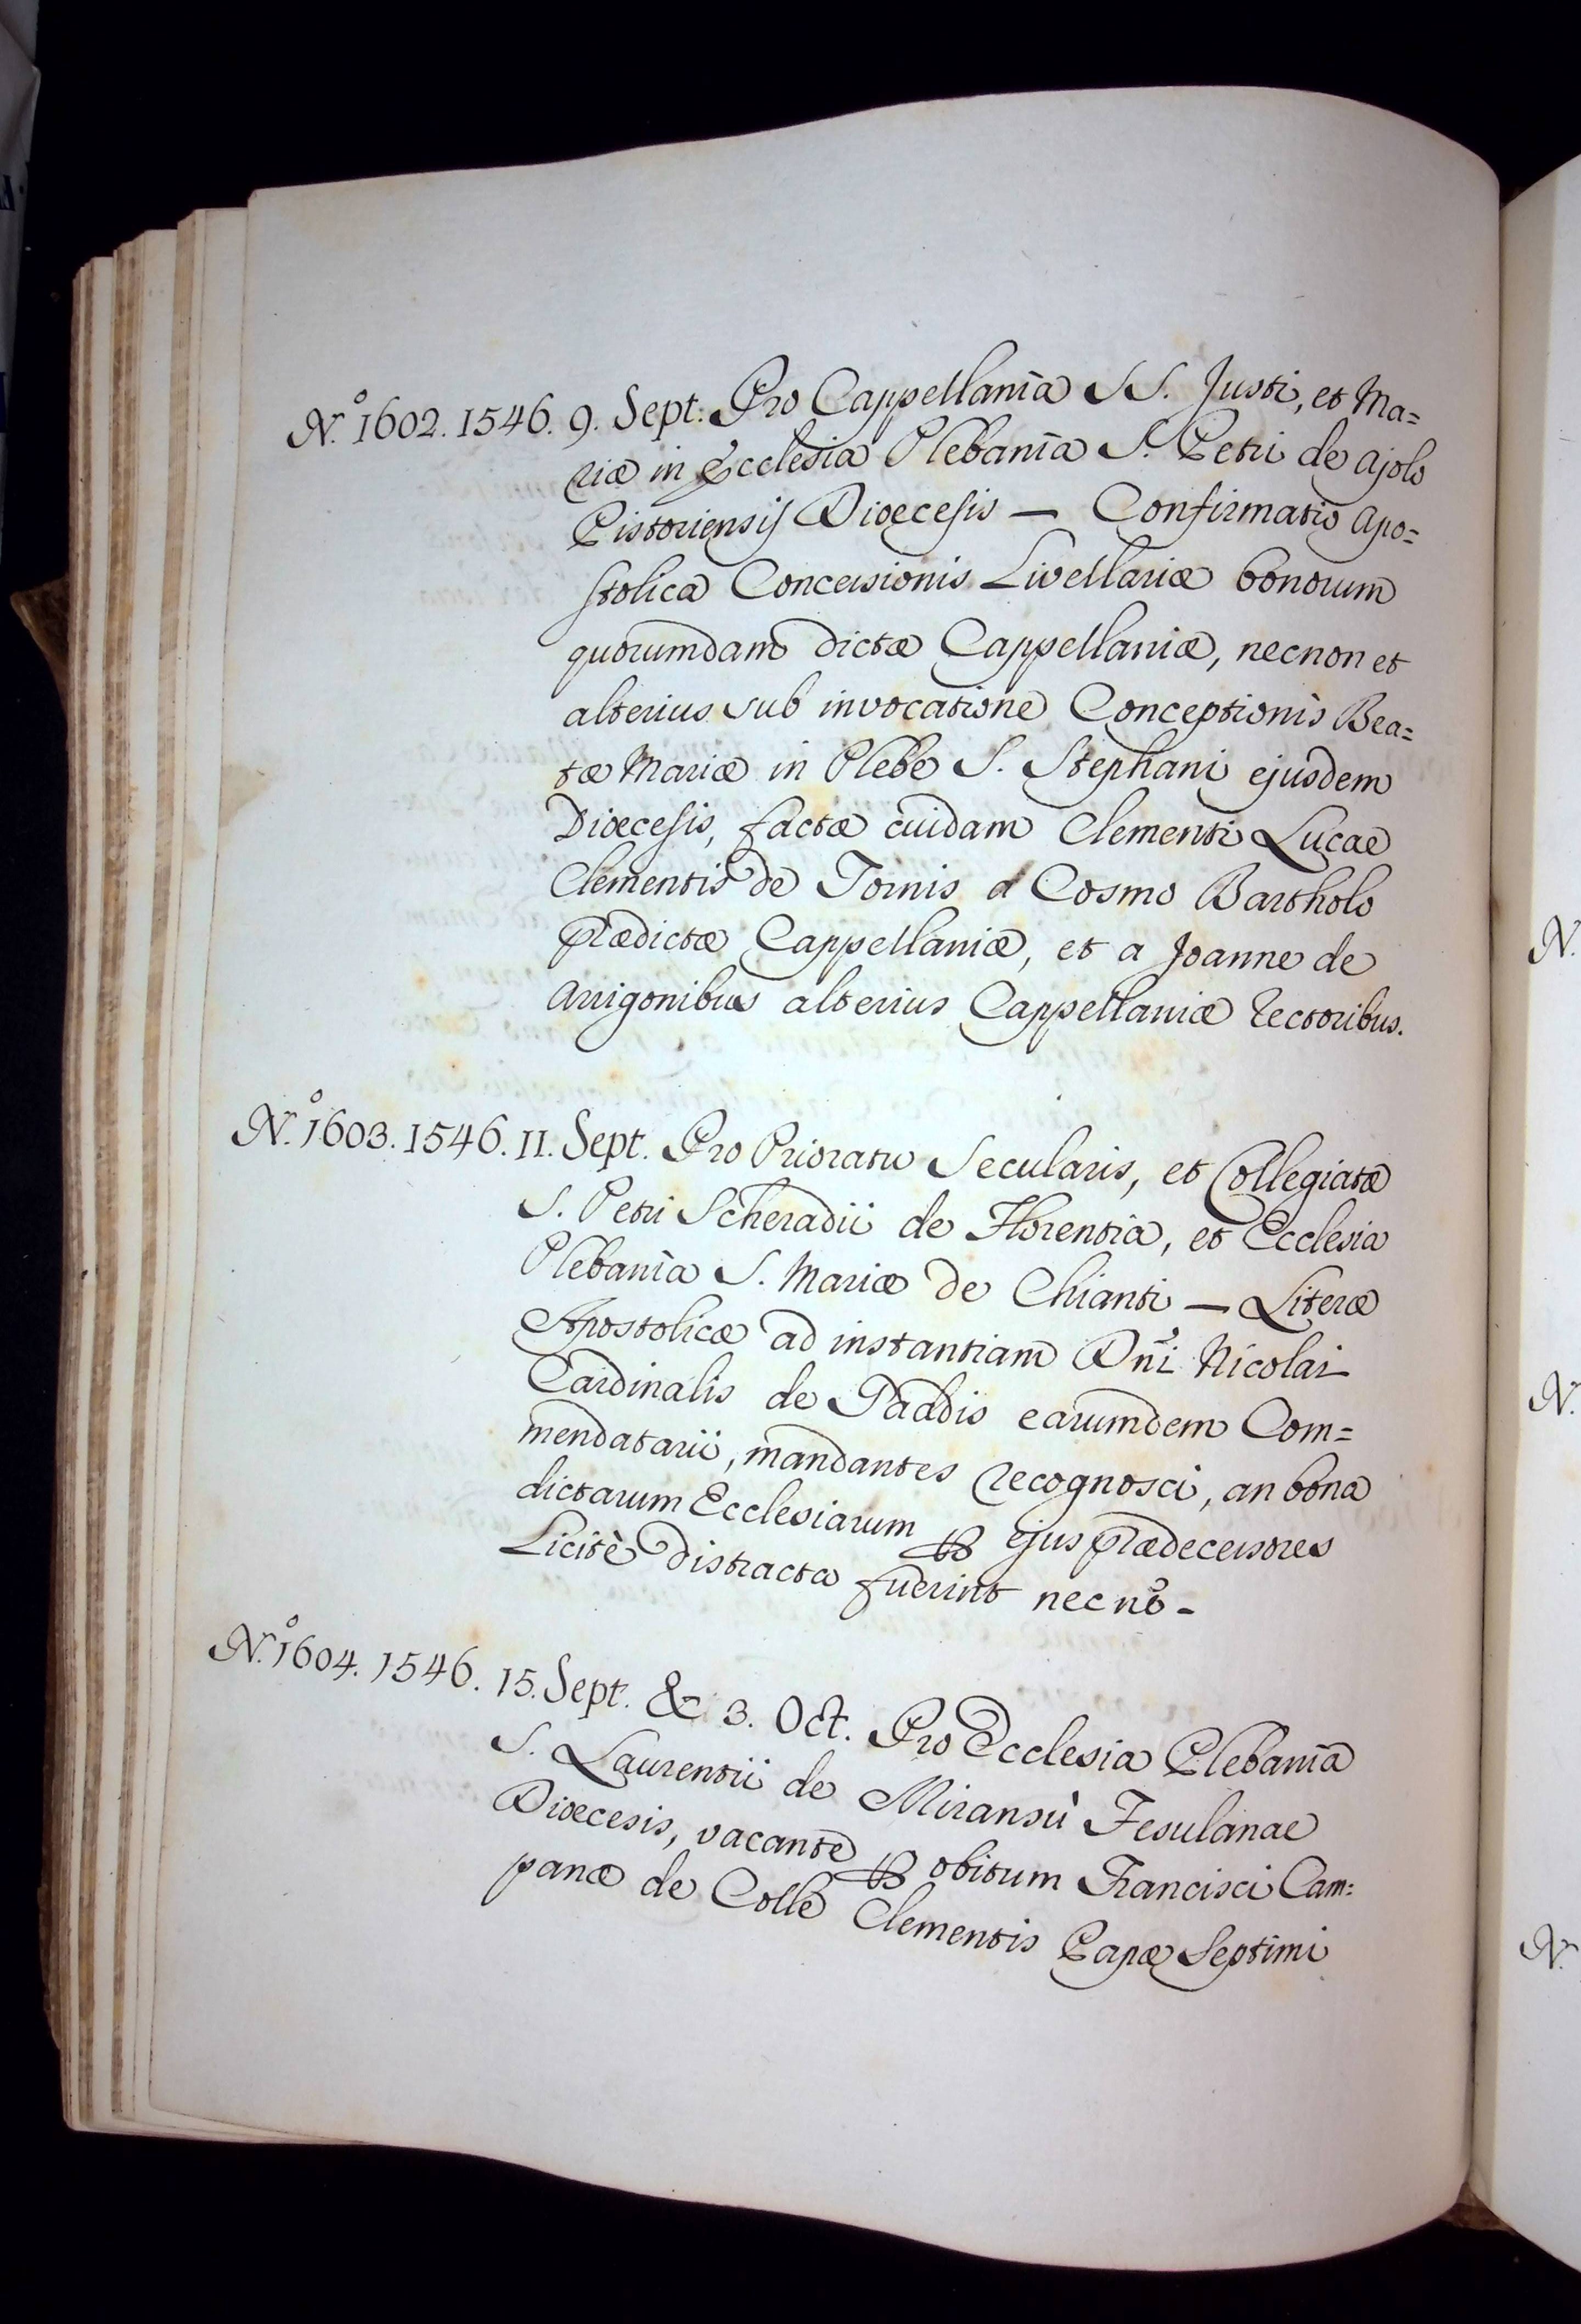 N.º 1602. 1546. 9. Sept: Pro Cappellania SS. Justi, et Ma=
riæ in Ecclesia Plebania S. Petri de Ajolo
Pistoriensis Diœcesis — Confirmatio Apo=
stolica Concessionis Livellariæ bonorum
quorumdam dictæ Cappellaniæ, necnon et
alterius sub invocatione Conceptionis Bea=
tæ Mariæ in Plebe S. Stephani ejusdem
Diœcesis, factæ cuidam Clementi Lucae
Clementis de Tornis a Cosmo Bartholo
prædictæ Cappellaniæ, et a Joanne de
Arrigonibus alterius Cappellaniæ Rectoribus.
N.º 1603. 1546. 11. Sept. Pro Prioratu Secularis, et Collegiatæ
S. Petri Scheradii de Florentia, et Ecclesia
Plebania S. Mariæ de Chianti — Literæ
Apostolicæ ad instantiam Dñi Nicolai
Cardinalis de Gaddis earumdem Com=
mendatarii, mandantes recognosci, an bona
dictarum Ecclesiarum ꝑ ejus prædecessores
Licitè distracta fuerint nec nè -
N.º 1604. 1546. 15. Sept. & 3. Oct. Pro Ecclesia Plebania
S. Laurentii de Miransù Fesulanae
Diœcesis, vacante ꝑ obitum Francisci Cam=
panæ de Colle Clementis Papæ Septimi
N.
N.
N.